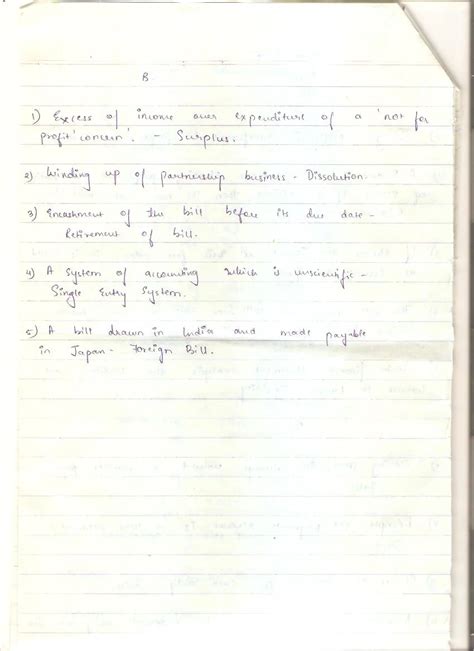 B.
1) Excess of income over expenditure of a 'not for
profit' concern'. - Surplus.
2) Winding up of partnership business - Dissolution.
3) Encashment of the bill before its due date -
Retirement of bill.
4) A System of accounting which is unscientific -
Single Entry System.
5) A bill drawn in India and made payable
in Japan - Foreign Bill.